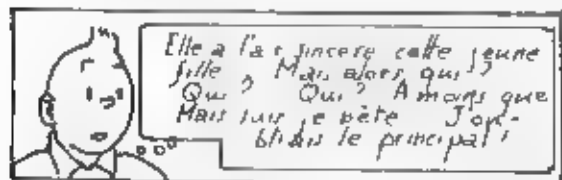 Elle a l'air sincère cette jeune
fille. Mais alors, qui ?
Qui ? Qui ? A moins que
Mais suis-je bête J'ou-
bliais le principal !